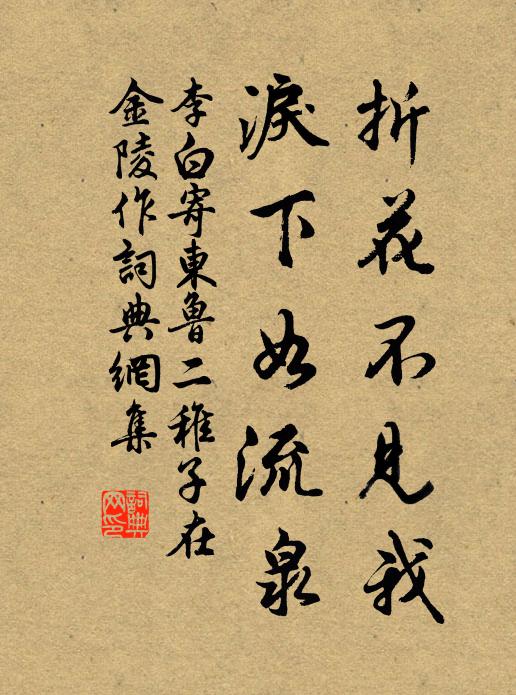 折花不見我
淚下如流泉
李白寄東魯二稚子在
金陵作詞典網集
詞典
网印